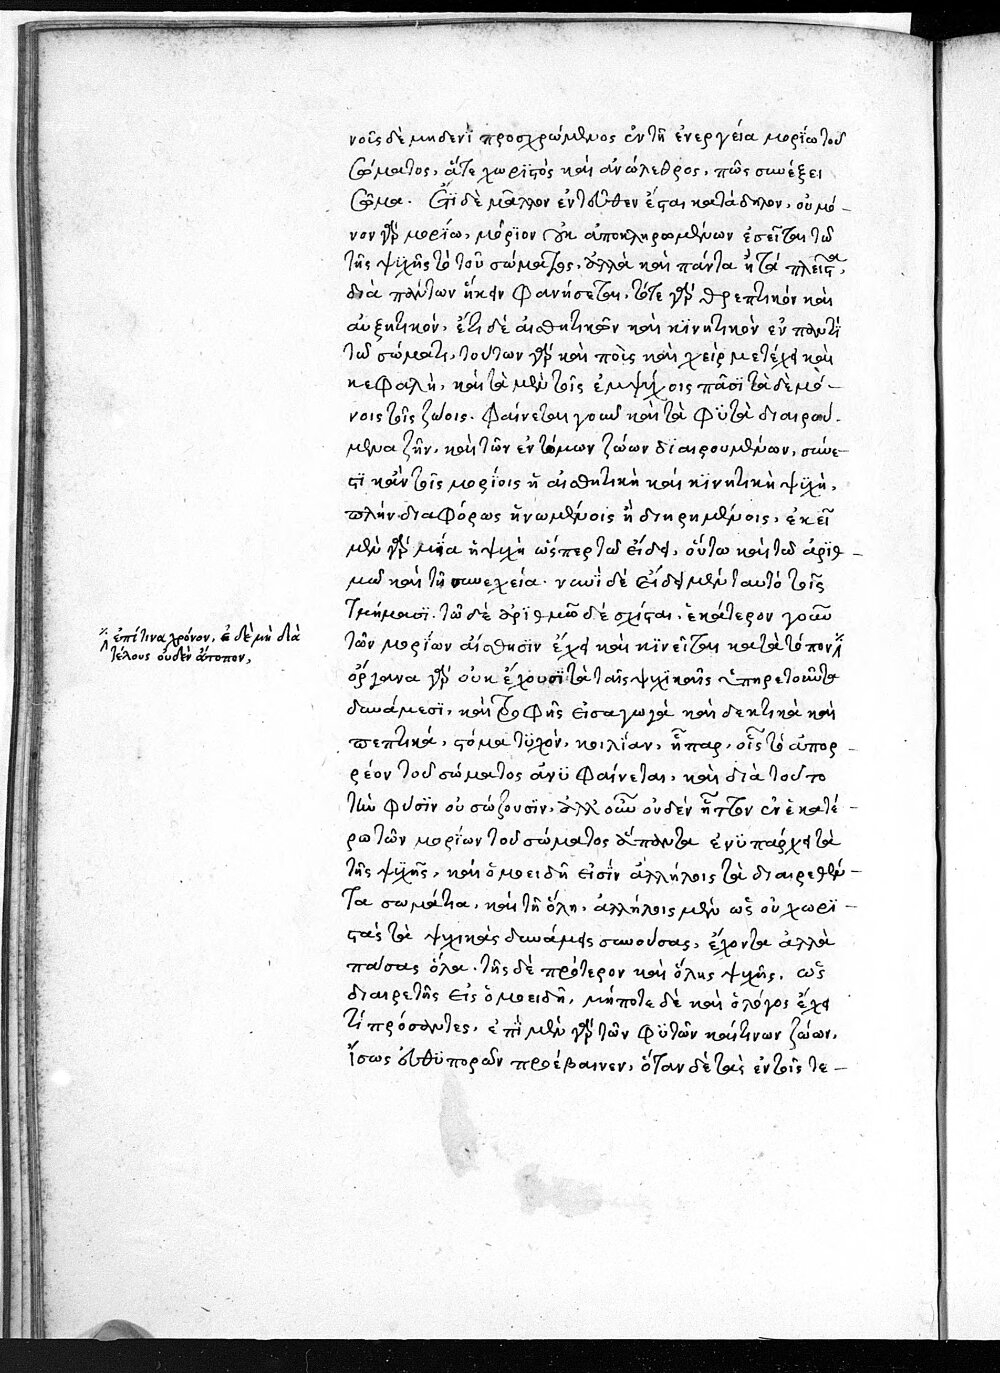 νοῖς δὲ μηδενὶ προσχρώμενος ἐν τῇ ἐνεργείᾳ μορίῳ τοῦ
σώματος, ἅτε χωριστὸς καὶ ἀνώλεθρος, πῶς συνέξει
σῶμα. ἔτι δὲ μᾶλλον ἐντεῦθεν ἔσται κατάδηλον, οὐ μό-
νον γὰρ μορίῳ, μόριον οὐκ ἀποκληρωμένων ἐσεῖται τῷ
τῆς ψυχῆς τὸ τοῦ σώματος, ἀλλὰ καὶ πάντα ἢ τὰ πλεῖστα,
διὰ πάντων ἥκειν φανήσεται, τότε γὰρ θρεπτικὸν καὶ
αὐξητικὸν, ἔτι δὲ αἰσθητικὸν καὶ κινητικὸν ἐν παντὶ
τῷ σώματι, τούτων γὰρ καὶ ποὺς καὶ χεὶρ μετέχει καὶ
κεφαλὴ, καὶ τὰ μὲν τοῖς ἐμψύχοις πᾶσι τὰ δὲ μό-
νοις τοῖς ζώοις. φαίνεται γοῦν καὶ τὰ φυτὰ διαιρού-
μενα ζῆν, καὶ τῶν ἐντόμων ζώων διαιρουμένων, σύνε-
στι κἀν τοῖς μορίοις ἡ αἰσθητικὴ καὶ κινητικὴ ψυχὴ,
πλὴν διαφόρως ἡνωμένοις ἢ διῃρημένοις, ἐκεῖ
μὲν γὰρ μία ἡ ψυχὴ ὥσπερ τῷ εἴδει, οὕτω καὶ τῷ ἀριθ-
μῷ καὶ τῇ συνεχείᾳ. νυνὶ δὲ εἴδει μὲν ταυτὸ τοῖς
τμήμασι. τῷ δὲ ἀριθμῷ δέσχισται, ἑκάτερον γοῦν
τῶν μορίων αἴσθησιν ἔχει καὶ κινεῖται κατὰ τόπον
ἐπί τινα χρόνον, εἰ δὲ μὴ διὰ
τέλους οὐδὲν ἄτοπον,
ὄργανα γὰρ οὐκ ἔχουσι τὰ ταῖς ψυχικαῖς ὑπηρετοῦντα
δυνάμεσι, καὶ τροφῆς εἰσαγωγὰ καὶ δεκτικὰ καὶ
πεπτικά, στόμα τυχὸν, κοιλίαν, ἧπαρ, οἷς τὸ ἀπορ-
ρέον τοῦ σώματος ἀνϋφαίνεται, καὶ διὰ τοῦτο
τὴν φύσιν οὐ σώζουσιν, ἀλλ' οὖν οὐδὲν ἧττον ἐν ἑκατέ-
ρῳ τῶν μορίων τοῦ σώματος ἅπαντα ἐνϋπάρχει τὰ
τῆς ψυχῆς, καὶ ὁμοειδῆ εἰσὶν ἀλλήλοις τὰ διαιρεθέν-
τα σωμάτια, καὶ τῇ ὅλῃ, ἀλλήλοις μὲν ὡς οὐ χωρι-
στὰς τὰ ψυχικὰς δυνάμεις συνούσας, ἔχοντα ἀλλὰ
πάσας ὅλα. τῆς δὲ πρότερον καὶ ὅλης ψυχῆς, ὡς
διαιρετῆς εἰς ὁμοειδῆ, μήποτε δὲ καὶ ὁ λόγος ἔχει
τι πρόσαντες, ἐπὶ μὲν γὰρ τῶν φυτῶν καί τινων ζώων,
ἴσως εὐθυπορῶν προέβαινεν, ὅταν δὲ τὰς ἐν τοῖς τε-